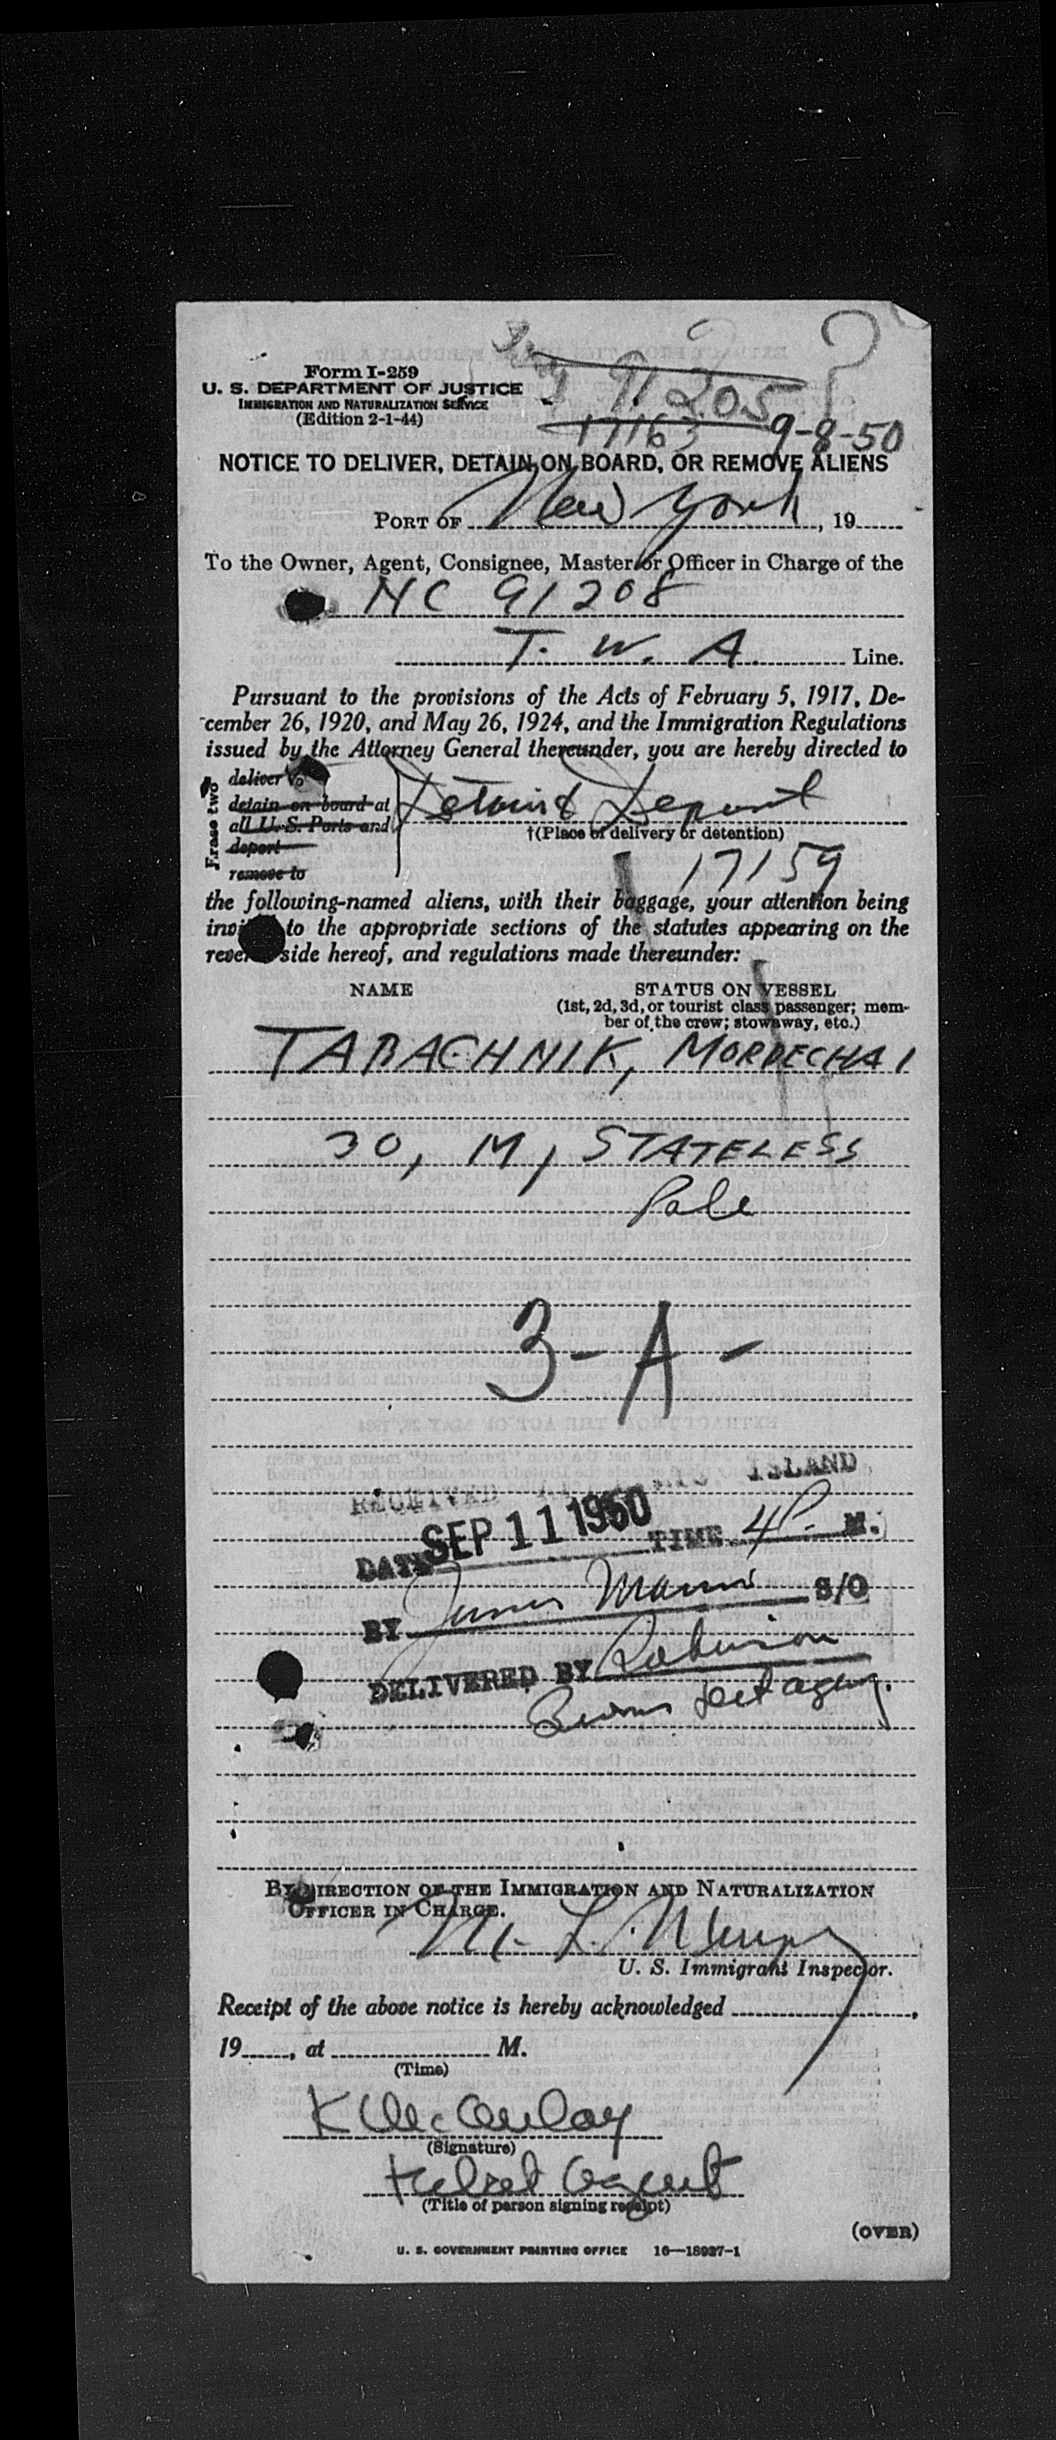 Form I-259
U. S. DEPARTMENT OF JUSTICE
IMMIGRATION AND NATURALIZATION SERVICE
(Edition 2-1-44)
91205
17163 9-8-50
NOTICE TO DELIVER, DETAIN ON BOARD, OR REMOVE ALIENS
PORT OF New York, 19
To the Owner, Agent, Consignee, Master or Officer in Charge of the
NC 91208
T. W. A. Line.
Pursuant to the provisions of the Acts of February 5, 1917, De-
cember 26, 1920, and May 26, 1924, and the Immigration Regulations
issued by the Attorney General thereunder, you are hereby directed to
Erase two
deliver to
detain on board at
all U. S. Ports and
deport
remove to
Detain & Deport
†(Place of delivery or detention)
17159
the following-named aliens, with their baggage, your attention being
invited to the appropriate sections of the statutes appearing on the
reverse side hereof, and regulations made thereunder:
NAME STATUS ON VESSEL
(1st, 2d, 3d, or tourist class passenger; mem-
ber of the crew; stowaway, etc.)
TABACHNIK, MORDECHAI
30, M, STATELESS
Pole
3-A-
RECEIVED AT ELLIS ISLAND
DATE SEP 11 1950 TIME 4 P. M.
BY James S/O
DELIVERED BY Robinson
BY DIRECTION OF THE IMMIGRATION AND NATURALIZATION
OFFICER IN CHARGE.
U. S. Immigrant Inspector.
Receipt of the above notice is hereby acknowledged ,
19 , at M.
(Time)
K McAulay
(Signature)
Ticket Agent
(Title of person signing receipt)
(OVER)
U. S. GOVERNMENT PRINTING OFFICE 16—18927-1